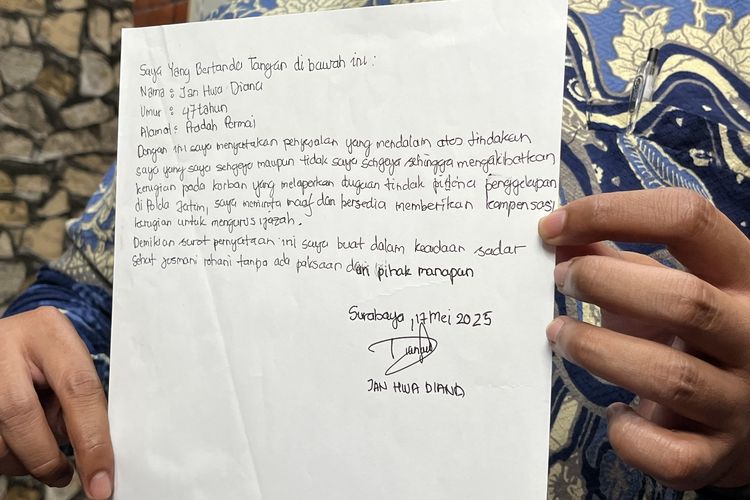 Saya Yang Bertanda Tangan di bawah ini :
Nama : Jan Hwa Diana
Umur : 47 tahun
Alamat : Pradah Permai
Dengan ini saya menyatakan penyesalan yang mendalam atas tindakan
saya yang saya sengaja maupun tidak saya sengaja sehingga mengakibatkan
kerugian pada korban yang melaporkan dugaan tindak pidana penggelapan
di Polda Jatim, saya meminta maaf dan bersedia memberikan kompensasi
kerugian untuk mengurus ijazah.
Demikian surat pernyataan ini saya buat dalam keadaan sadar
sehat jasmani rohani tanpa ada paksaan dari pihak manapun
Surabaya, 17 Mei 2025
JAN HWA DIANA